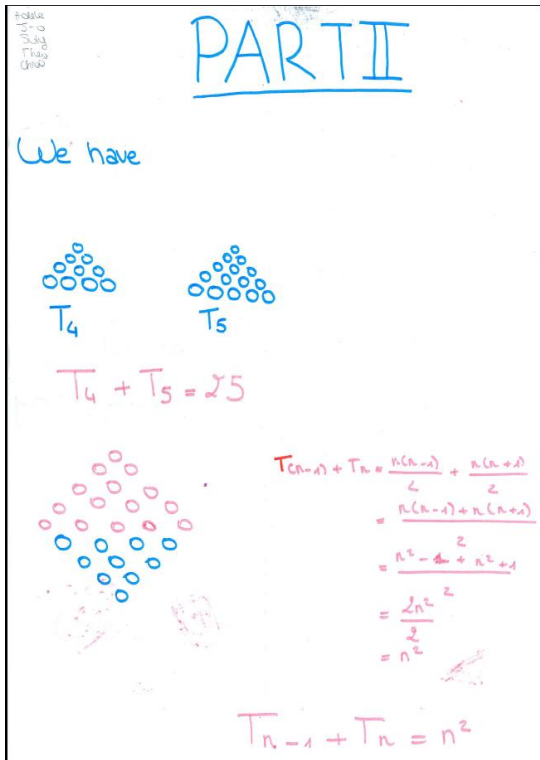 PART II
We have
T4 T5
T4 + T5 = 25
T(n-1) + Tn = n(n-1)/2 + n(n+1)/2
= n(n-1) + n(n+1)/2
= n² - 1 + n² + 1/2
= 2n²/2
= n²
Tn-1 + Tn = n²